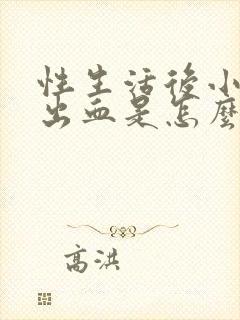 性生活後小
出血是怎麼
高洪